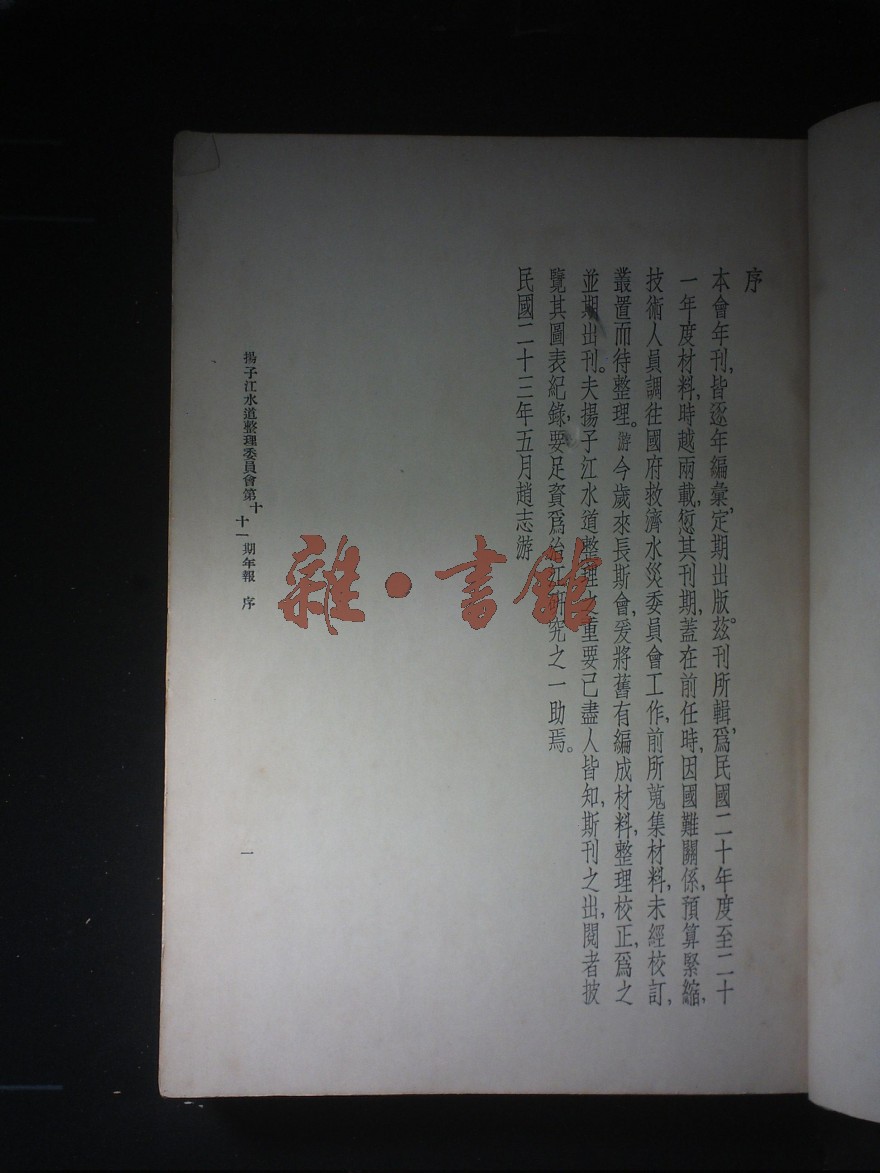 序
本會年刊,皆逐年編彙,定期出版。茲刊所輯,爲民國二十年度至二十
一年度材料,時越兩載,愆其刊期,蓋在前任時,因國難關係,預算緊縮,
技術人員調往國府救濟水災委員會工作,前所蒐集材料,未經校訂,
叢置而待整理。游今歲來長斯會,爰將舊有編成材料,整理校正,爲之
並期出刊。夫揚子江水道整理之重要已盡人皆知,斯刊之出,閱者披
覽其圖表紀錄,要足資爲治江研究之一助焉。
民國二十三年五月趙志游
揚子江水道整理委員會第十十一期年報 序
一
雜·書館